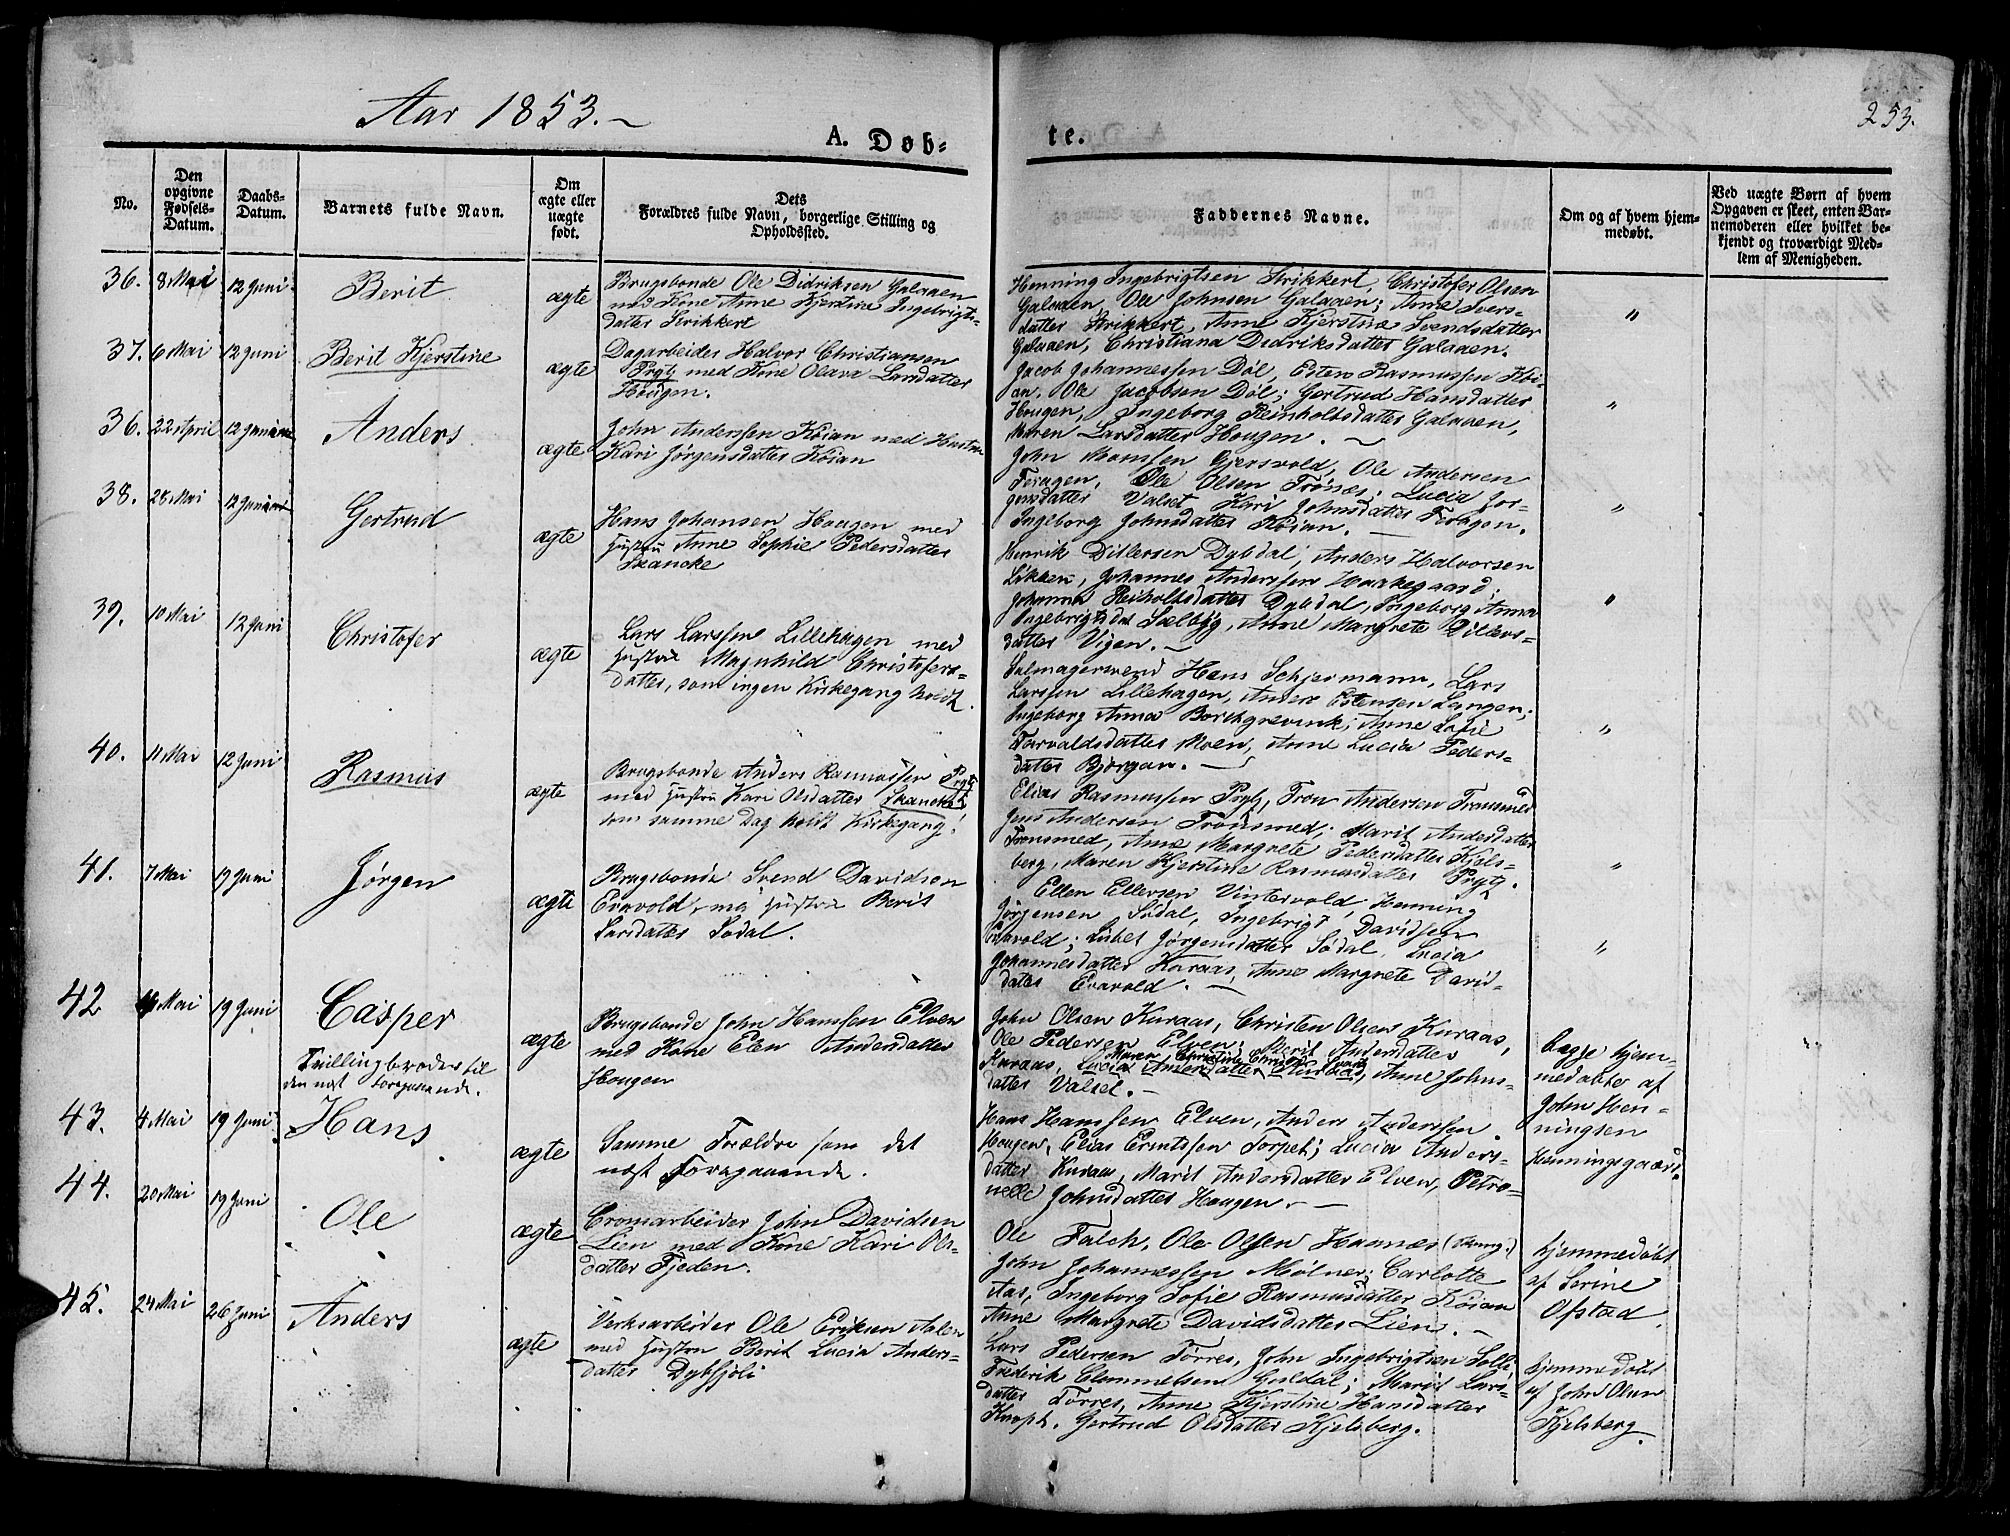 Aar 1853.
253.
A. Døb-
te.
No.
Den opgivne Fødsels-Datum.
Daabs-Datum.
Barnets fulde Navn.
Om ægte eller uægte født.
Dets Forældres fulde Navn, borgerlige Stilling og Opholdssted.
Faddernes Navne.
Om og af hvem hjem-medøbt.
Ved uægte Børn af hvem Opgaven er skeet, enten Bar-nemoderen eller hvilket be-kjendt og troværdigt Med-lem af Menigheden.
36. 8 Mai 12 Juni Berit ægte
Brugsbonde Ole Didriksen Galaaen
med Kone Anne Kjerstine Ingebrigts-
datter Strikkert
Henning Ingebrigtsen Strikkert, Christofer Olsen
Galaaen, Ole Johnsen Galaaen; Anne Ivers-
datter Strikkert, Anne Kjerstine Svendsdatter
Galaaen, Christiana Didriksdatter Galaaen.
"
37. 6 Mai 12 Juni Berit Kjerstine ægte
Dagarbeider Halvor Christiansen
Prytz med Kone Olava Larsdatter
Hougen.
Jacob Johannessen Døl, Esten Rasmussen Kói-
an, Ole Jacobsen Døl; Gertrud Hansdatter
Hougen, Ingeborg Reinholtsdatter Galaaen,
Maren Larsdatter Hougen.
"
36. 22 April 12 Juni Anders ægte
John Anderssen Kóian med Hustru
Kari Jørgensdatter Kóian
John Monssen Gjersvold, Ole Andersen
Feragen, Ole Olsen Trónæs; Lucia Jør-
gensdatter Valset, Kari Johnsdatter Feragen,
Ingeborg Johnsdatter Kóian.
"
38. 28 Mai 12 Juni Gertrud ægte
Hans Johansen Hougen med
Hustru Anne Sophie Pedersdatter
Skancke
Henrik Ditlevsen Dybdal, Anders Halvorsen
Løkken, Johannes Anderssen Haakegaard;
Johanna Reiholtsdatter Dybdal, Ingeborg Anna
Ingebrigtsdat Sælbyg, Anne Margrete Ditlevs-
datter Vigen.
"
39. 10 Mai 12 Juni Christofer ægte
Lars Larssen Lillehagen med
Hustru Magnhild Christofers-
datter, som ingen Kirkegang holdt.
Salmagersvend Hans Schjermann, Lars
Larssen Lillehagen, Anders Estensen Langen;
Ingeborg Anna Borchgrevink, Anne Sofie
Torvaldsdatter Moen, Anne Lucia Peders-
datter Bjørgan.
"
40. 11 Mai 12 Juni Rasmus ægte
Brugsbonde Anders Rasmussen Prytz
med Hustru Kari Olsdatter Skancke
som samme Dag holdt Kirkegang.
Elias Rasmussen Prytz, Tron Andersen Tronsmed
Jens Andersen Tronsmed; Marit Andersdatter
Tronsmed, Anne Margrete Pedersdatter Kjels-
berg, Maren Kjerstine Rasmusdatter Prytz.
"
41. 7 Mai 19 Juni Jørgen ægte
Brugsbonde Svend Davidsen
Evavold, m. Hustru Berit
Larsdatter Sødal.
Ellen Ellersen Vintervold, Henning
Jørgensen Sødal, Ingebrigt Davidsen
Evavold; Lisbet Jørgensdatter Sødal, Lucia
Johannesdatter Kuraas, Anne Margrete David-
datter Evavold.
"
42 4 Mai 19 Juni Casper
Tvillingbroder til
den næst foregaaende.
ægte
Brugsbonde John Hanssen Elven
med Kone Elen Andersdatter
Hougen
John Olsen Kuraas, Christen Olsen Kuraas,
Ole Pedersen Elven; Berit Andersdatter
Kuraas, Lucia Andersdatter Kuraas, Anne Johns-
datter Valset.
begge hjem-
medøbte af
John Hen-
ningsen
Henningsgaard.
43. 4 Mai 19 Juni Hans ægte
Samme Forældre som det
næst Foregaaende.
Hans Hanssen Elven, Anders Anderssen
Hougen, Elias Erntssen Torpet; Lucia Anders-
datter Kuraas, Marit Andersdatter Elven, Petro-
nelle Johnsdatter Hougen.
44. 20 Mai 19 Juni Ole ægte
Cromarbeider John Davidsen
Lien med Kone Kari Ols-
datter Fjeden.
Ole Falch, Ole Olsen Haanæs
John Johannessen Mølner; Carlotte
Aas, Ingeborg Sofie Rasmusdatter Kóian
Anne Margrete Davidsdatter Lien.
hjemmedøbt
af Serine
Ofstad.
45. 24 Mai 26 Juni Anders ægte
Verksarbeider Ole Eriksen Aalen
med Hustru Berit Lucia Anders-
datter Dybsjøli
Lars Pedersen Tørres, John Ingebrigtsen Solli
Frederik Clemmetsen Guldal; Marit Lars-
datter Tørres, Anne Kjerstine Hansdatter
Knoph, Gertrud Olsdatter Kjelsberg.
hjemmedøbt
af John Olsen
Kjelsberg.